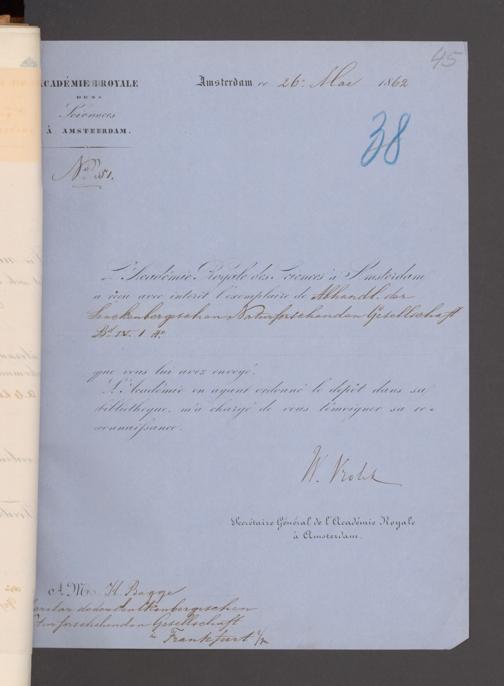 45
ACADÉMIE ROYALE
DES
Sciences
À AMSTERDAM.
Amsterdam ce 26 Mai 1862
38
L'Académie Royale des Sciences à Amsterdam
a reçu avec intérêt l'exemplaire de Abhandl. der
Senckenbergischen Naturforschenden Gesellschaft
Bd. IV. 1 4o
que vous lui avez envoyé.
L'Académie en ayant ordonné le dépôt dans sa
bibliothèque, m'a chargé de vous témoigner sa re-
connaissance.
W. Vrolik
Secrétaire Général de l'Académie Royale
à Amsterdam.
A M. H. Bagge
Gesellschaft
Frankfurt